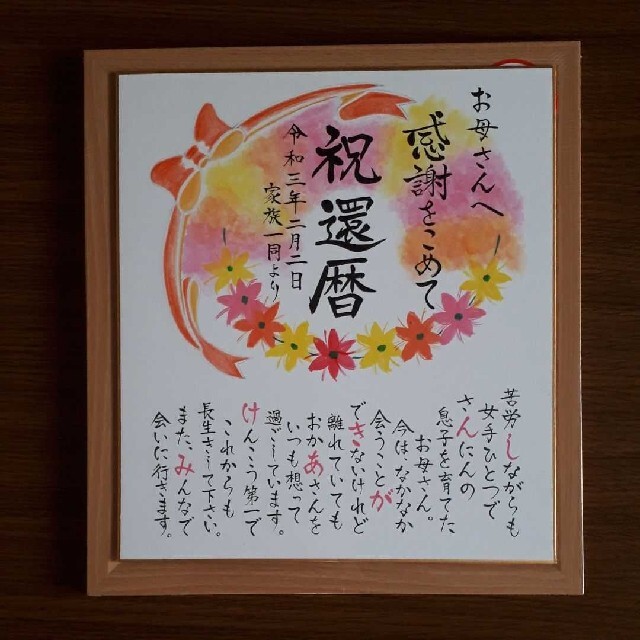 お母さんへ
感謝をこめて
祝還暦
令和三年二月二日
家族一同より
苦労しながらも
女手ひとつで
さんにんの
息子を育てた
お母さん。
今は、なかなか
会うことが
できないけれど
離れていても
おかあさんを
いつも想って
過ごしています。
けんこう第一で
これからも
長生きして下さい。
また、みんなで
会いに行きます。